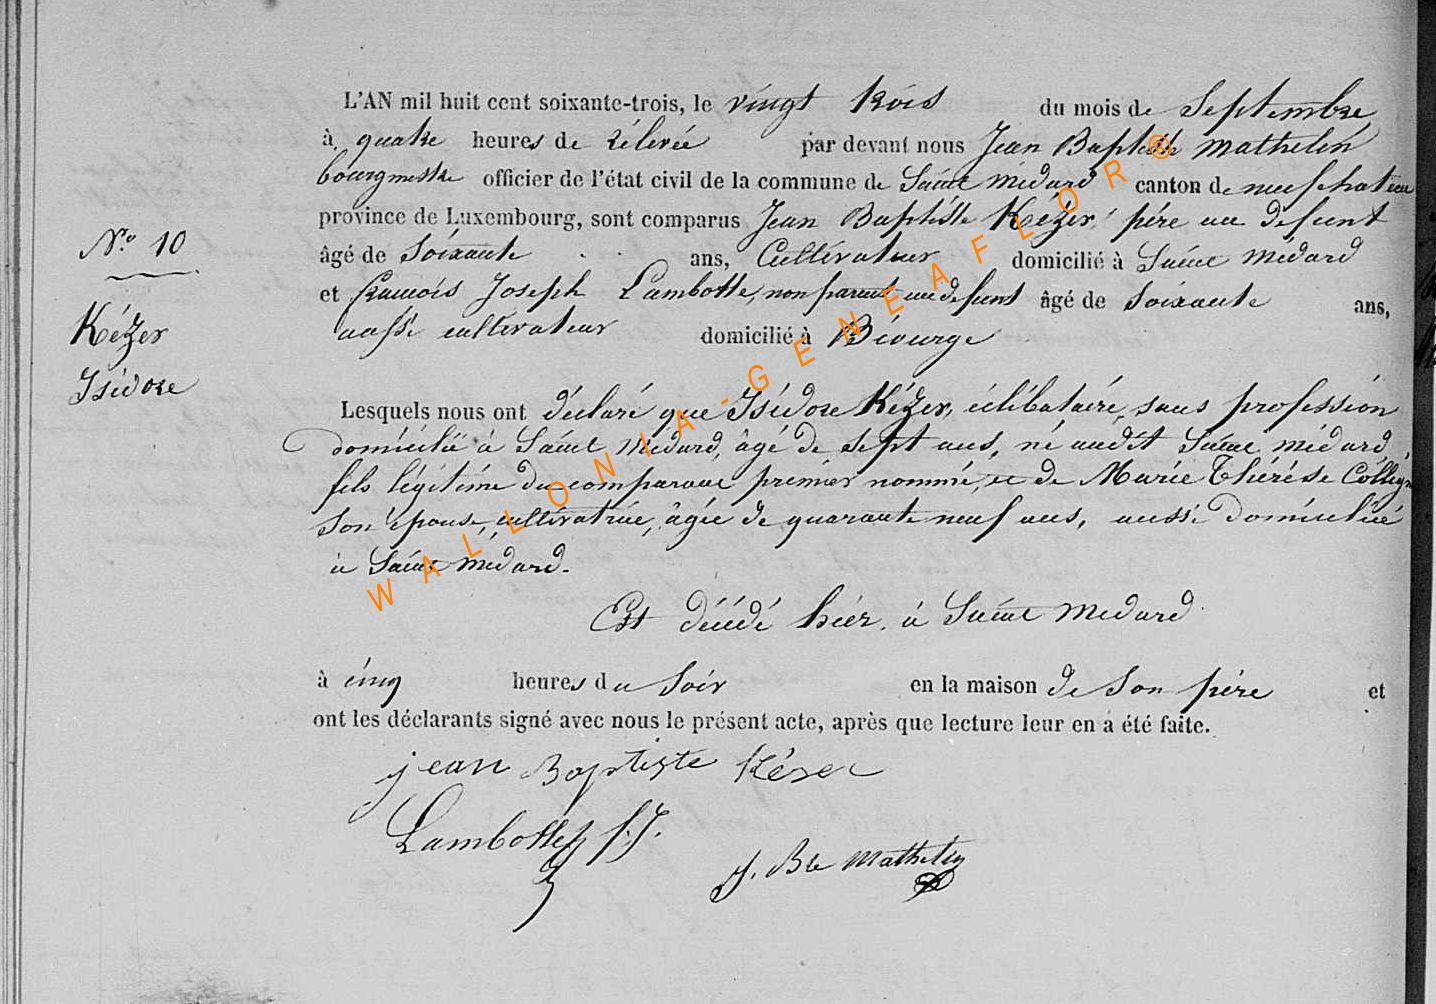 L'AN mil huit cent soixante-trois, le vingt trois du mois de Septembre
à quatre heures de rélevée par devant nous Jean Baptiste Mathelin
bourgmestre officier de l'état civil de la commune de Saint Médard canton de neufchateau
province de Luxembourg, sont comparus Jean Baptiste Kézer, père au défunt
N.o 10
âgé de soixante ans, Cultivateur domicilié à Saint Médard
et francois Joseph Lambotte, non parent au défunt âgé de soixante ans,
Kézer
aussi cultivateur domicilié à Biourge
Isidore
Lesquels nous ont déclaré que Isidore Kézer, célibataire, sans profession
domicilié à Saint Médard, âgé de sept ans, né audit Saint Médard,
fils légitime du comparant premier nommé, et de Marie Thérése Collign
son épouse, cultivatrice, âgée de quarante neuf ans, aussi domiciliée
à Saint Médard.
Est décédé hier, à Saint Médard
à cinq heures du soir en la maison de son père et
ont les déclarants signé avec nous le présent acte, après que lecture leur en a été faite.
jean Baptiste Késer
Lambotte f. J.
J. Bte Mathelin
WALLONIA-GENEAFLOR®